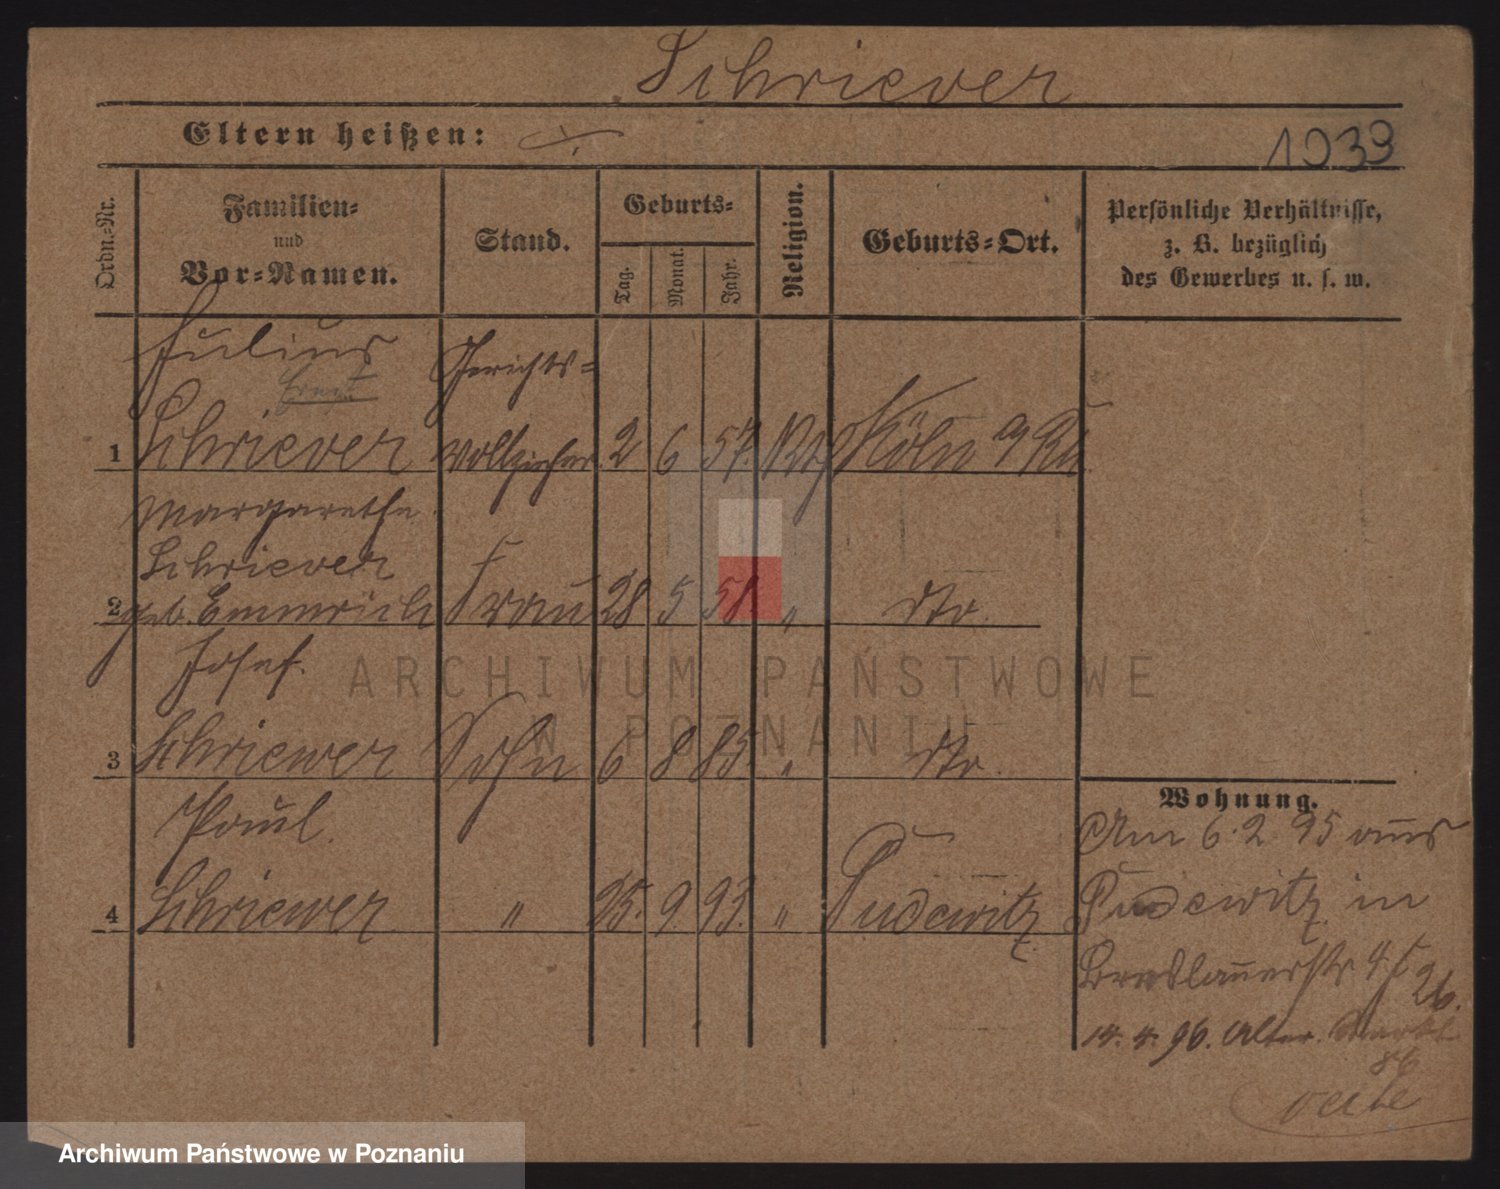 Schriever
Eltern heißen:
1939
Ordn.-Nr.
Familien-
und
Vor-Namen.
Stand.
Geburts-
Tag.
Monat.
Jahr.
Religion.
Geburts-Ort.
Persönliche Verhältnisse,
z. B. bezüglich
des Gewerbes u. s. w.
Julius
Ernst
Gerichts-
1 Schriever vollzieher 2 6 57. Köln
Margarethe
Schriever
2 geb. Emmrich Frau 28 5 58. " dto.
Josef.
3 Schriewer Sohn 6 8 85. " dto.
Paul.
4 Schriewer " 25. 9. 93. " Pudewitz.
Wohnung.
Am 6.2.95 aus
Pudewitz in
Breslauerstr
26.
14.4.96. Alter Markt
86
ARCHIWUM PAŃSTWOWE
W POZNANIU
Archiwum Państwowe w Poznaniu